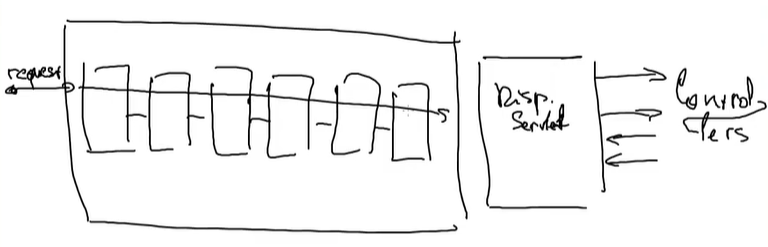 request
Disp.
Servlet
Control
lers